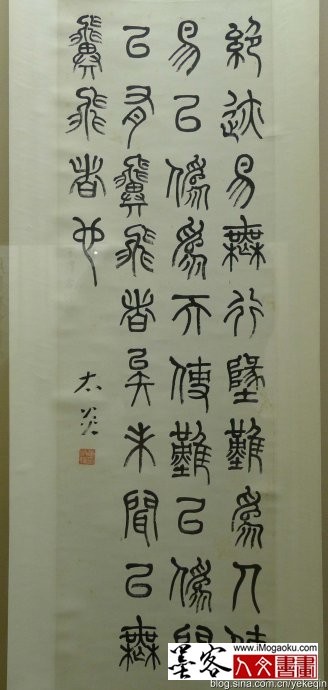 絕迹易無行墬難為人使
易㠯偽為天使難㠯偽聞
㠯有翼飛者矣未聞㠯無
翼飛者也
太炎
墨客
www.iMogaoku.com
人文書畫
blog.sina.com.cn/yekeqin